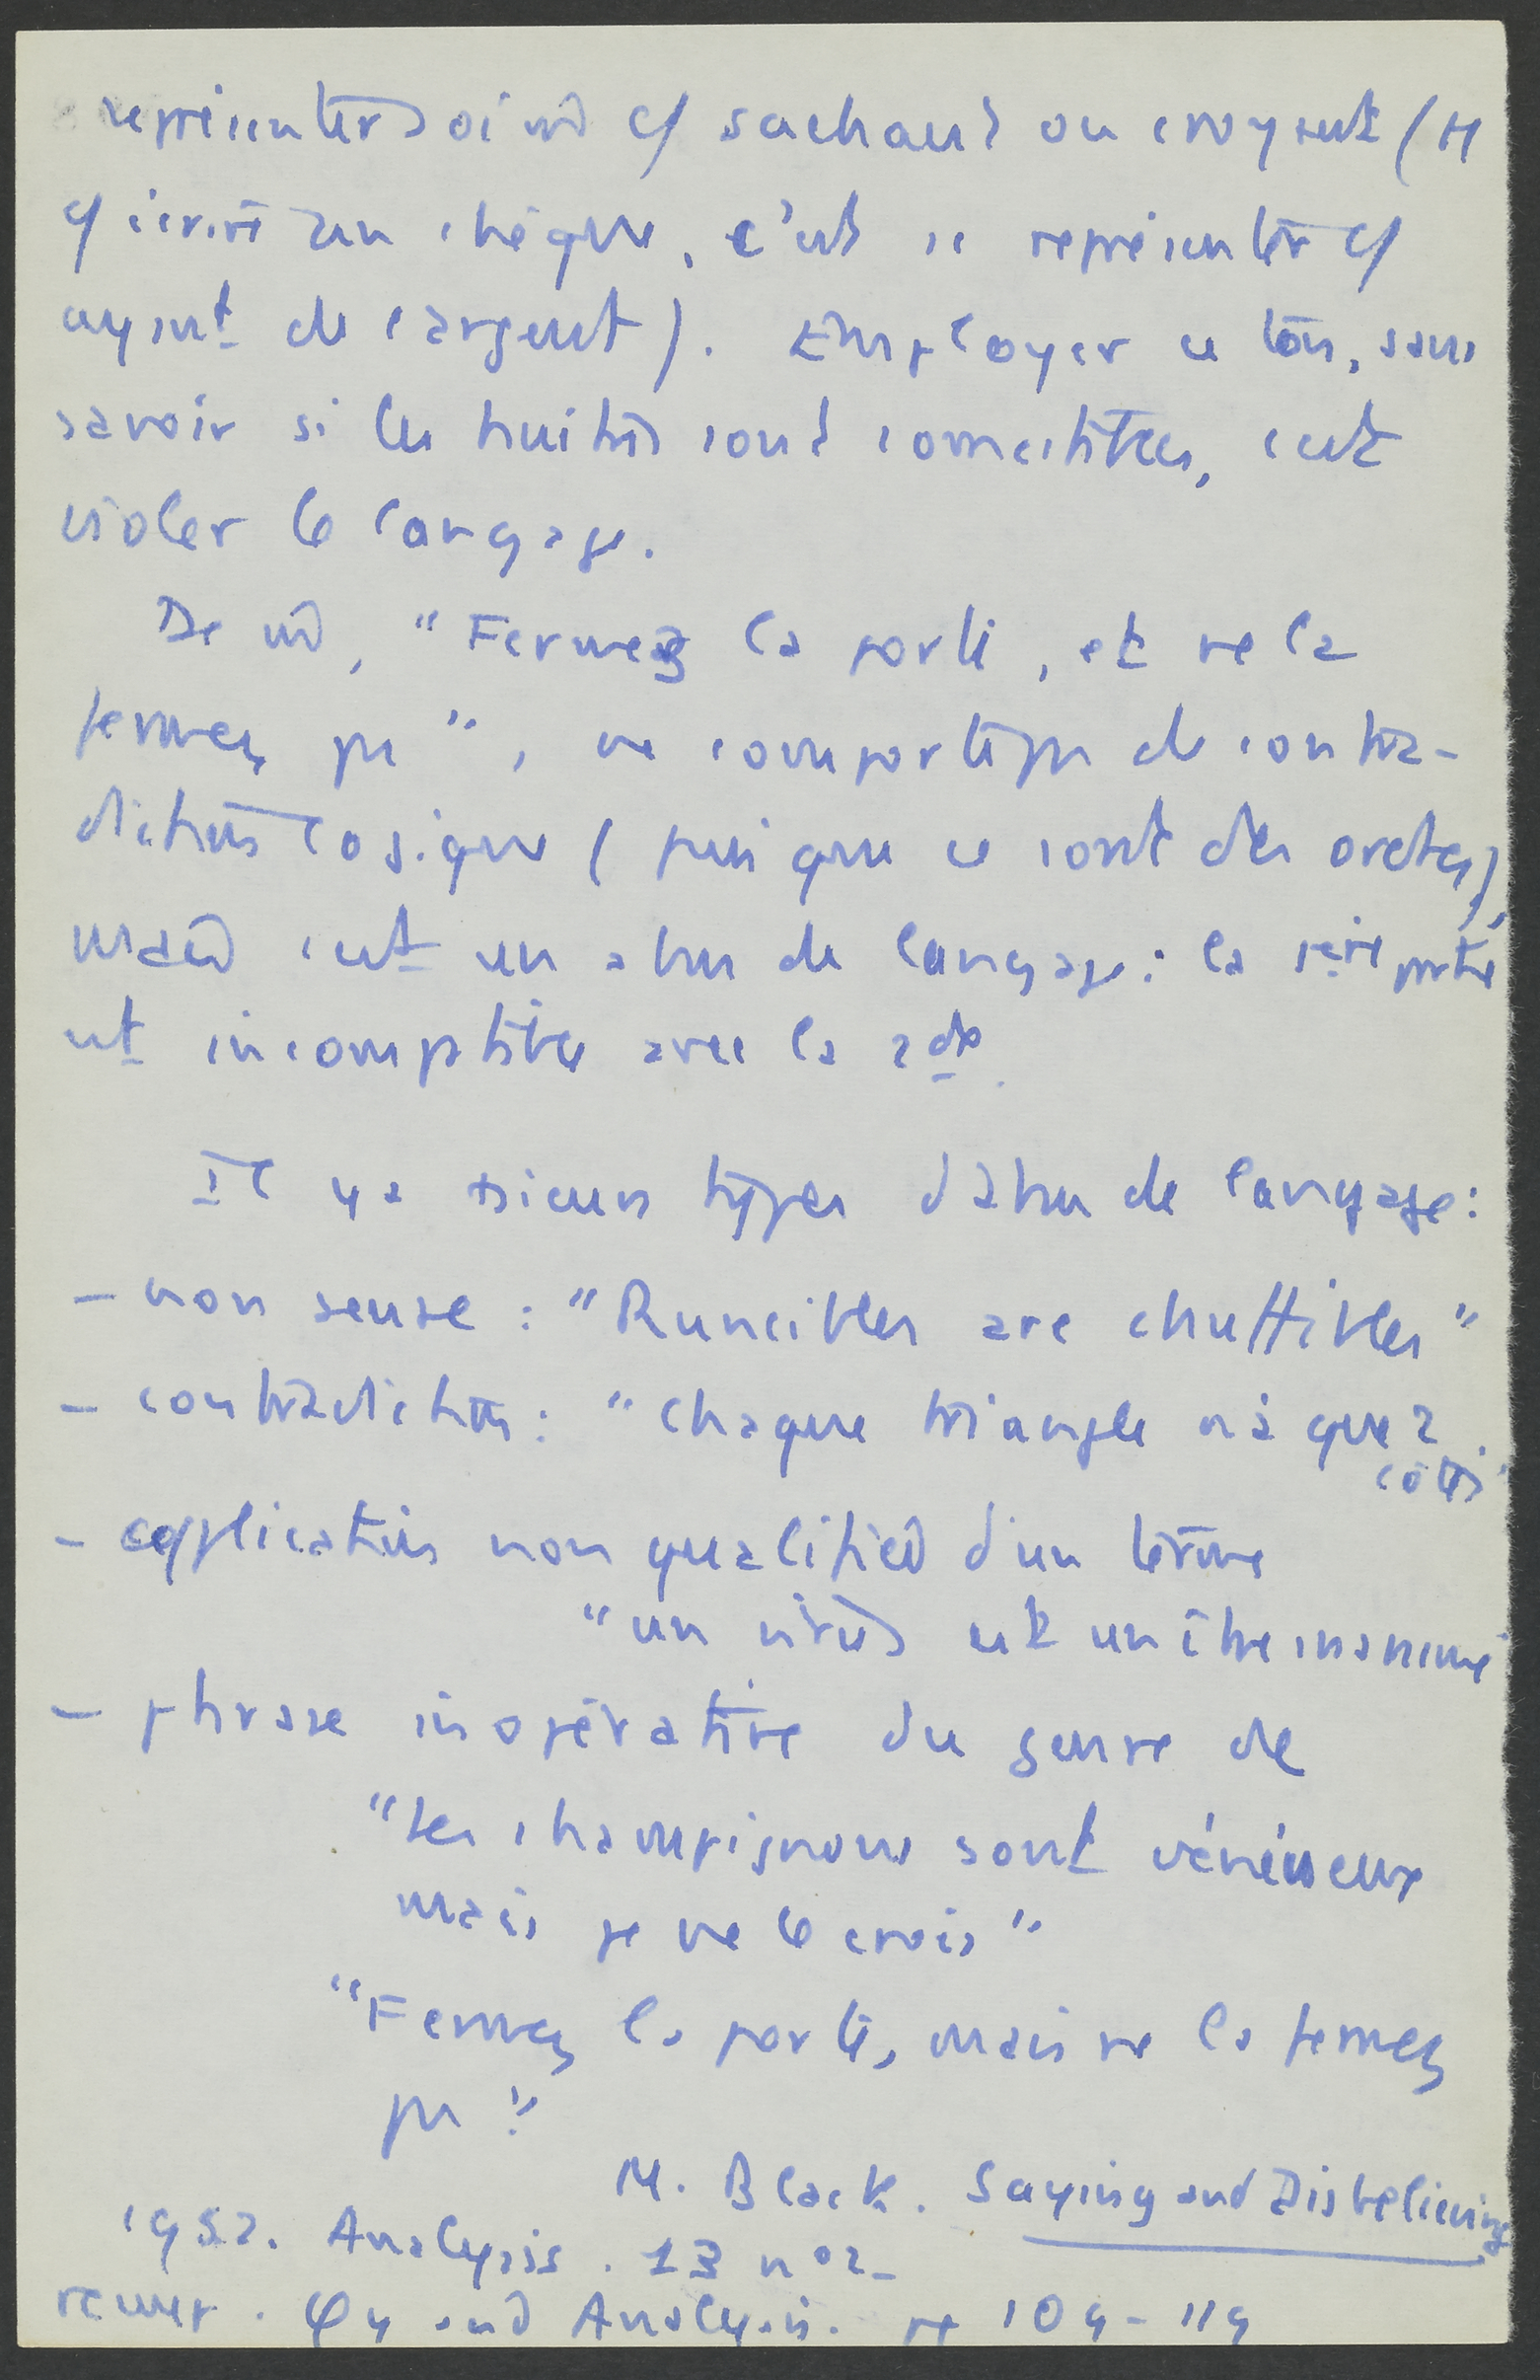 représenter soi m̂ c/ sachant ou croyant (M
c/ écrire un chèque, c'est se représenter c/
ayant de l'argent). Employer ce ton, sans
savoir si les huitres sont comestibles, c'est
violer le langage.
De m̂, "Fermez la porte, et ne la
fermez pas", ne comporte pas de contra-
diction logique (puisque ce sont des ordres),
mais c'est un abus de langage : la 1ère partie
est incompatible avec la 2de.
Il y a plsieurs types d'abus de langage :
– non sense : "Runcibles are chuffibles"
– contradiction : "Chaque triangle n'a que 2
côtés".
– application non qualifiée d'un terme
"un virus est un être inanimé"
– phrase inopérative du genre de
"les champignons sont vénéneux
mais je ne le crois"
"Fermez la porte, mais ne la fermez
pas".
M. Black. Saying and Disbelieving
1952. Analysis. 13 n° 2_
réimp. φy and Analysis. pp 109-119